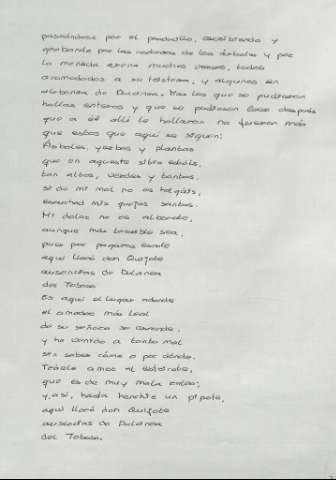 paseándose por el pradecillo, escribiendo y
grabando por las cortezas de los árboles y por
la menuda arena muchos versos, todos
acomodados a su tristeza, y algunos en
alabanza de Dulcinea. Mas los que se pudieron
hallar enteros y que se pudiesen leer después
que a él allí le hallaron no fueron más
que estos que aquí se siguen:
Árboles, yerbas y plantas
que en aqueste sitio estáis,
tan altos, verdes y tantas,
si de mi mal no os holgáis,
escuchad mis quejas santas.
Mi dolor no os alborote,
aunque más terrible sea,
pues por pagaros escote
aquí lloró don Quijote
ausencias de Dulcinea
del Toboso.
Es aquí el lugar adonde
el amador más leal
de su señora se esconde,
y ha venido a tanto mal
sin saber cómo o por dónde.
Tráele amor al estricote,
que es de muy mala ralea;
y, así, hasta henchir un pipote,
aquí lloró don Quijote
ausencias de Dulcinea
del Toboso.